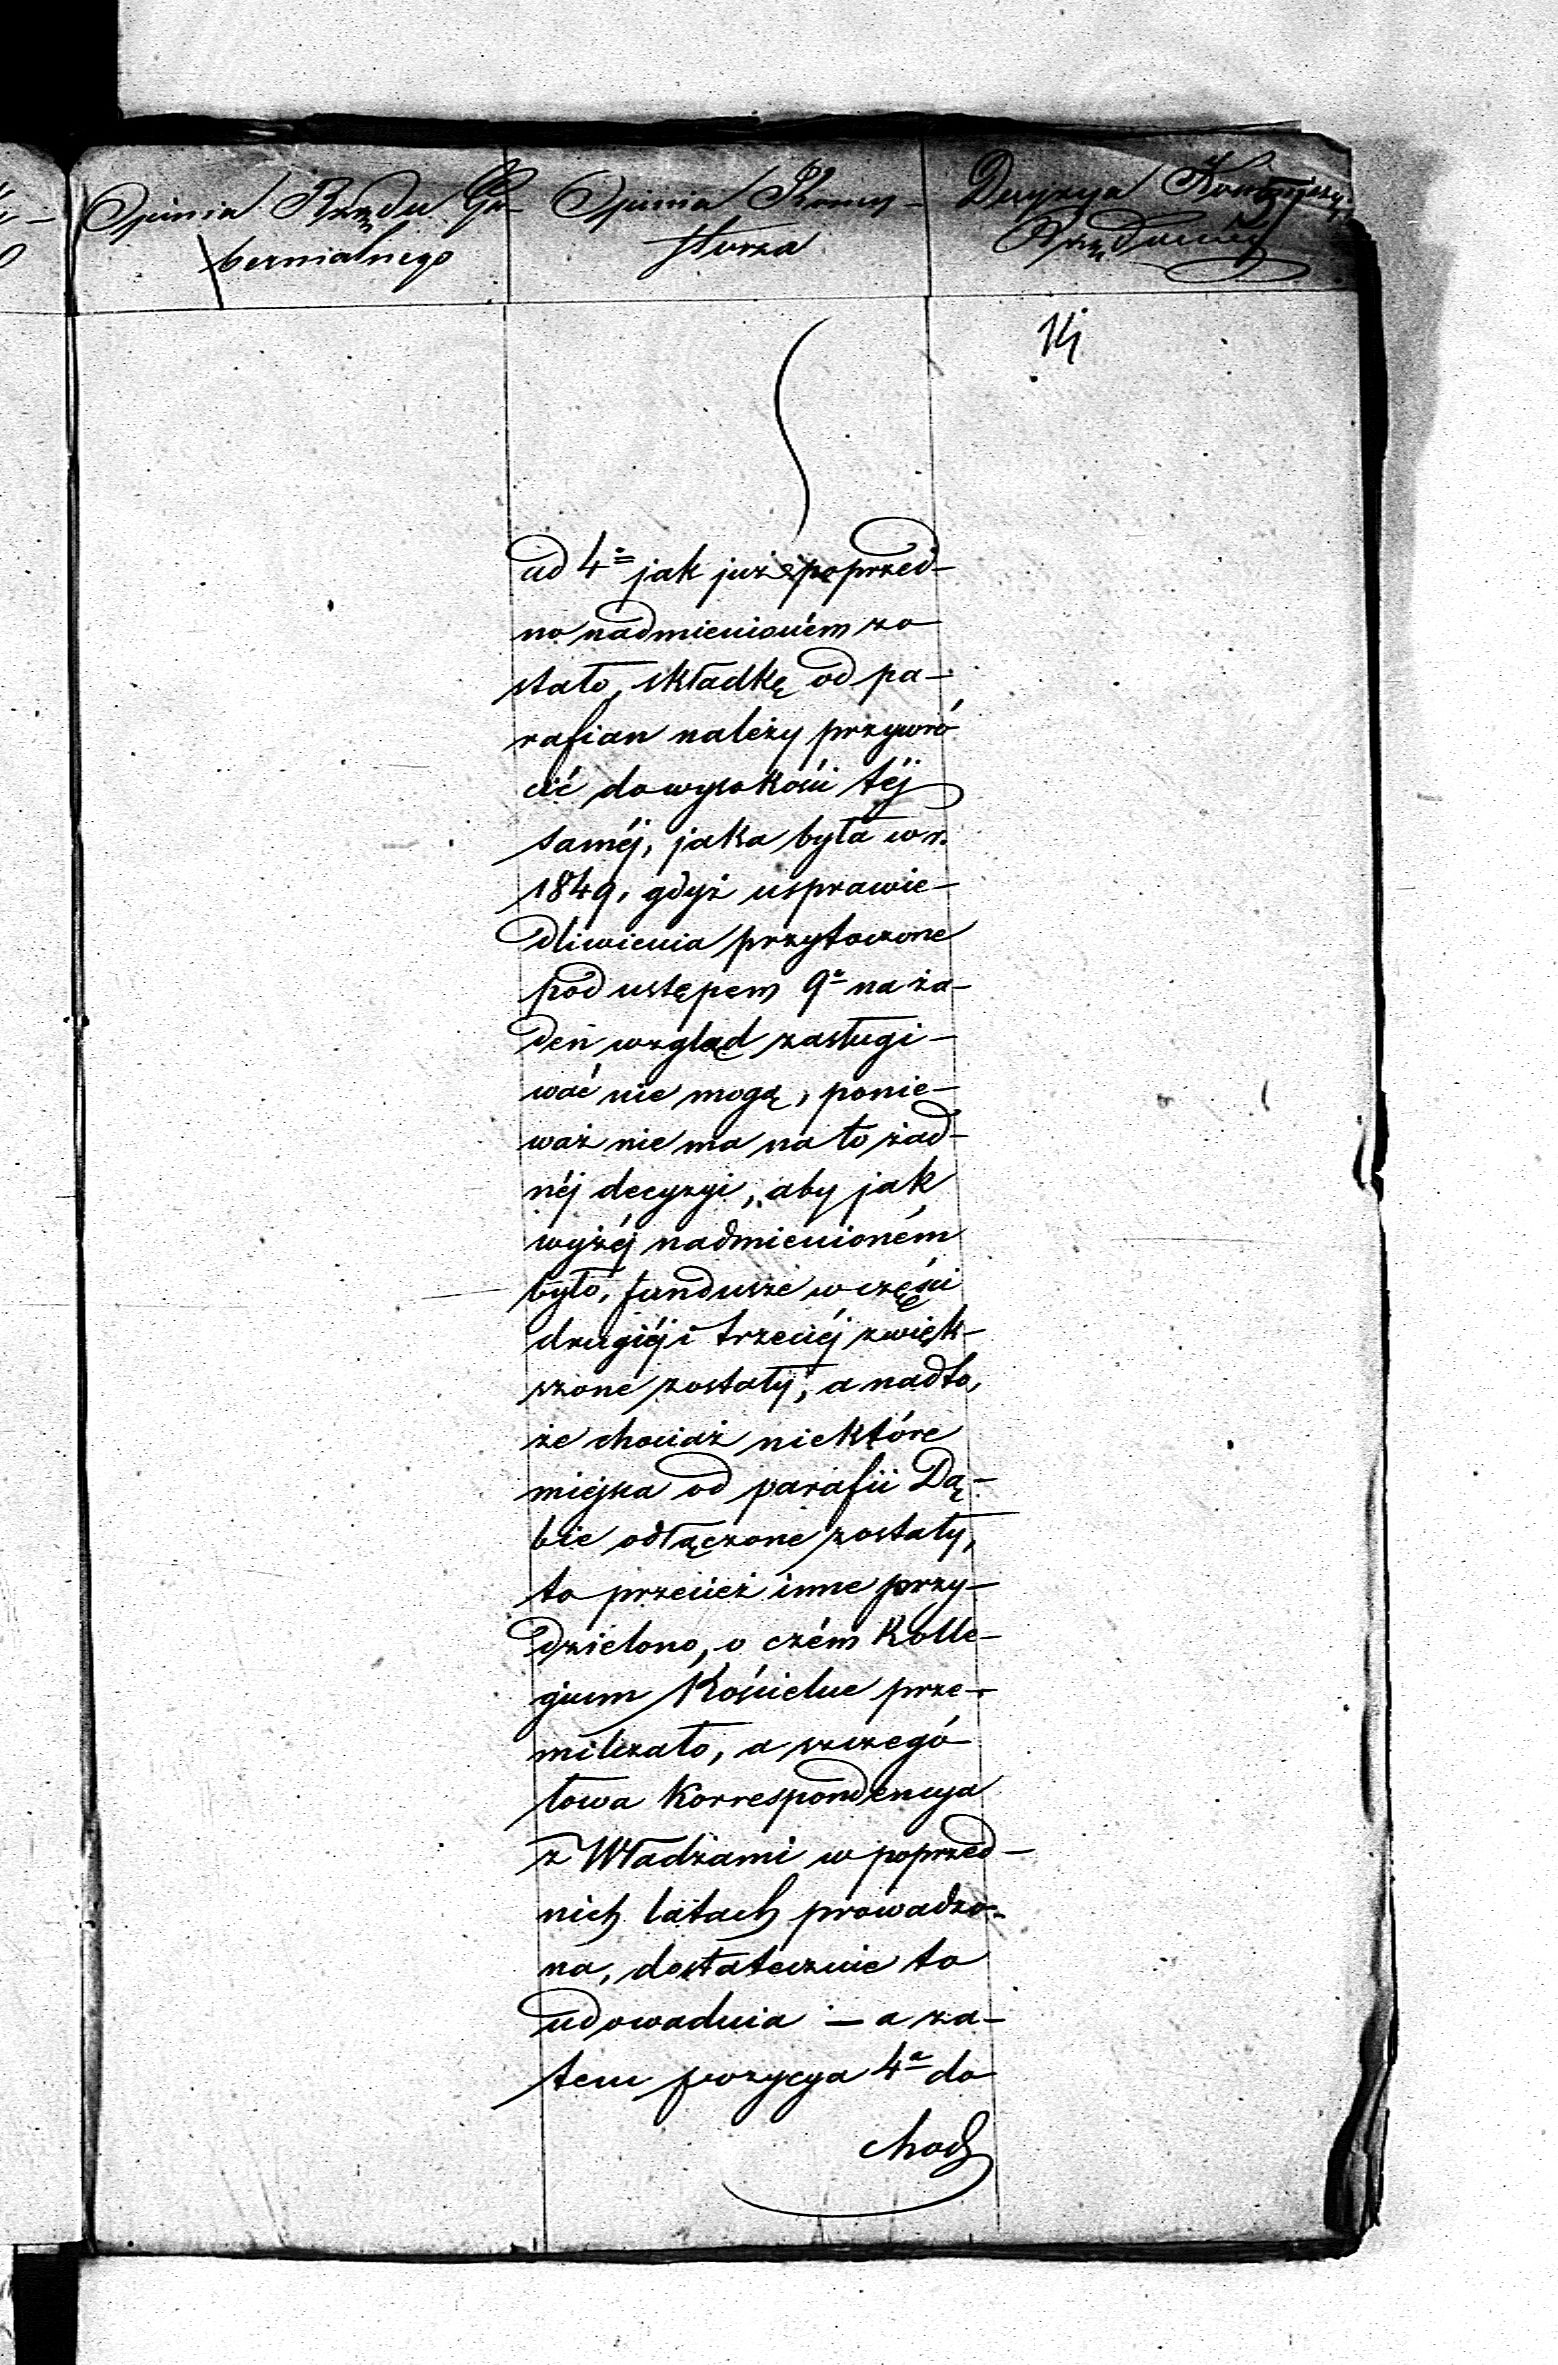 Opinia Rządu Gu-
bernialnego
Opinia Konsy-
storza
Decyzya Kommissyi
Rządowéj
14
ad 4= jak już poprzed-
no nadmienioném zo
stało, składkę od pa-
rafian należy przywró
cić do wysokości téj
saméj, jaka była w r.
1849, gdyż usprawie-
dliwienia przytoczone
pod ustępem 9ᵃ na ża-
den wzgląd zasługi-
wać nie mogą, ponie-
waż nie ma na to żad-
néj decyzyi, aby jak
wyżéj nadmienioném
było, fundusze w części
drugiéj i trzeciéj zwięk-
szone zostały, a nadto,
że chociaż niektóre
miejsca od parafii Dą-
bie odłączone zostały,
to przecież inne przy-
dzielono, o czém Kolle-
gium Kościelne prze-
milczało, a szczegó
łowa Korrespondencya
z Władzami w poprzed-
nich latach prowadzo-
na, dostatecznie to
udowadnia – a za-
tem pozycya 4ᵃ do
chod